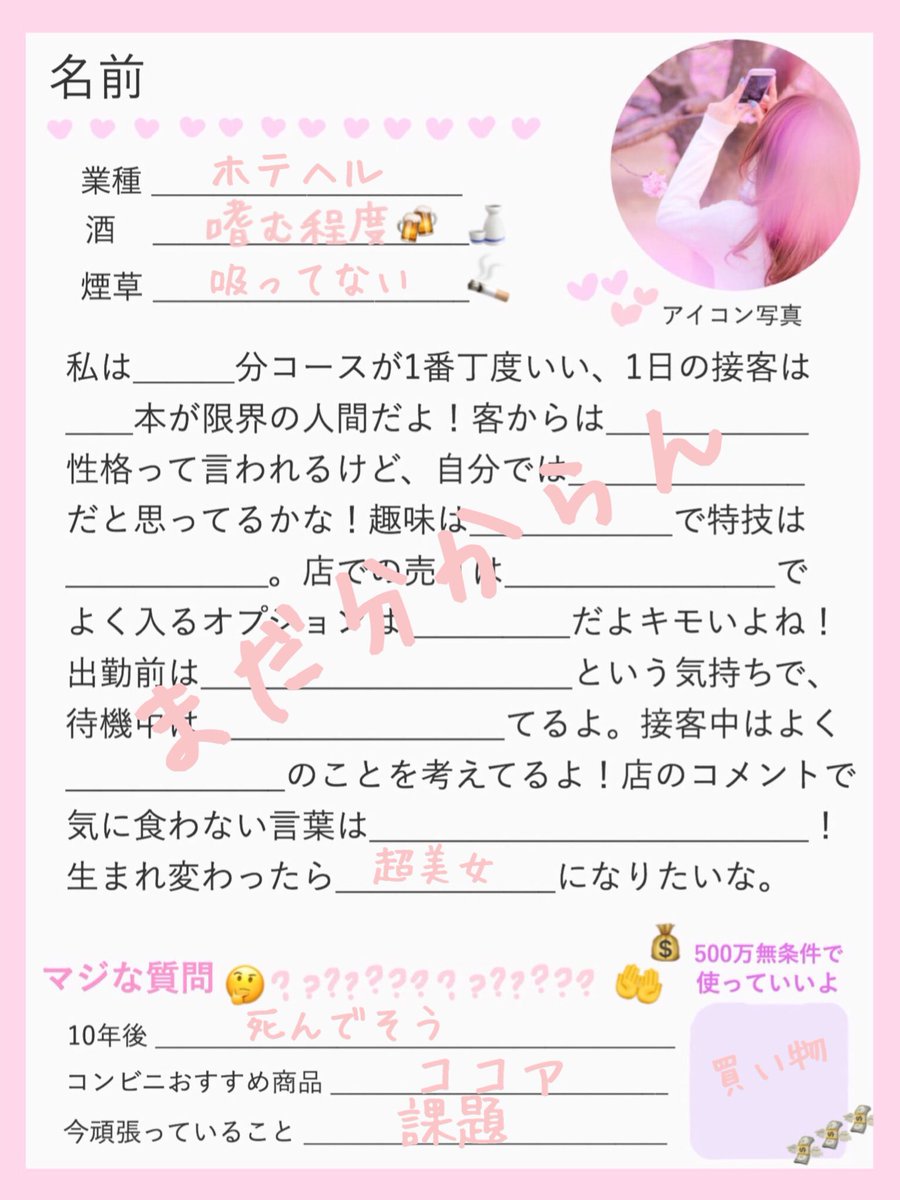 名前
業種 ホテヘル
酒 嗜む程度
煙草 吸ってない
アイコン写真
私は______分コースが1番丁度いい、1日の接客は
____本が限界の人間だよ！客からは____________
性格って言われるけど、自分では______________
だと思ってるかな！趣味は____________で特技は
____________。店での売 は________________で
よく入るオプションは__________だよキモいよね！
出勤前は______________________という気持ちで、
待機中は__________________てるよ。接客中はよく
_____________のことを考えてるよ！店のコメントで
気に食わない言葉は__________________________！
生まれ変わったら 超美女 になりたいな。
まだ分からん
マジな質問 ????????????????
500万無条件で
使っていいよ
10年後 死んでそう
コンビニおすすめ商品 ココア
今頑張っていること 課題
買い物